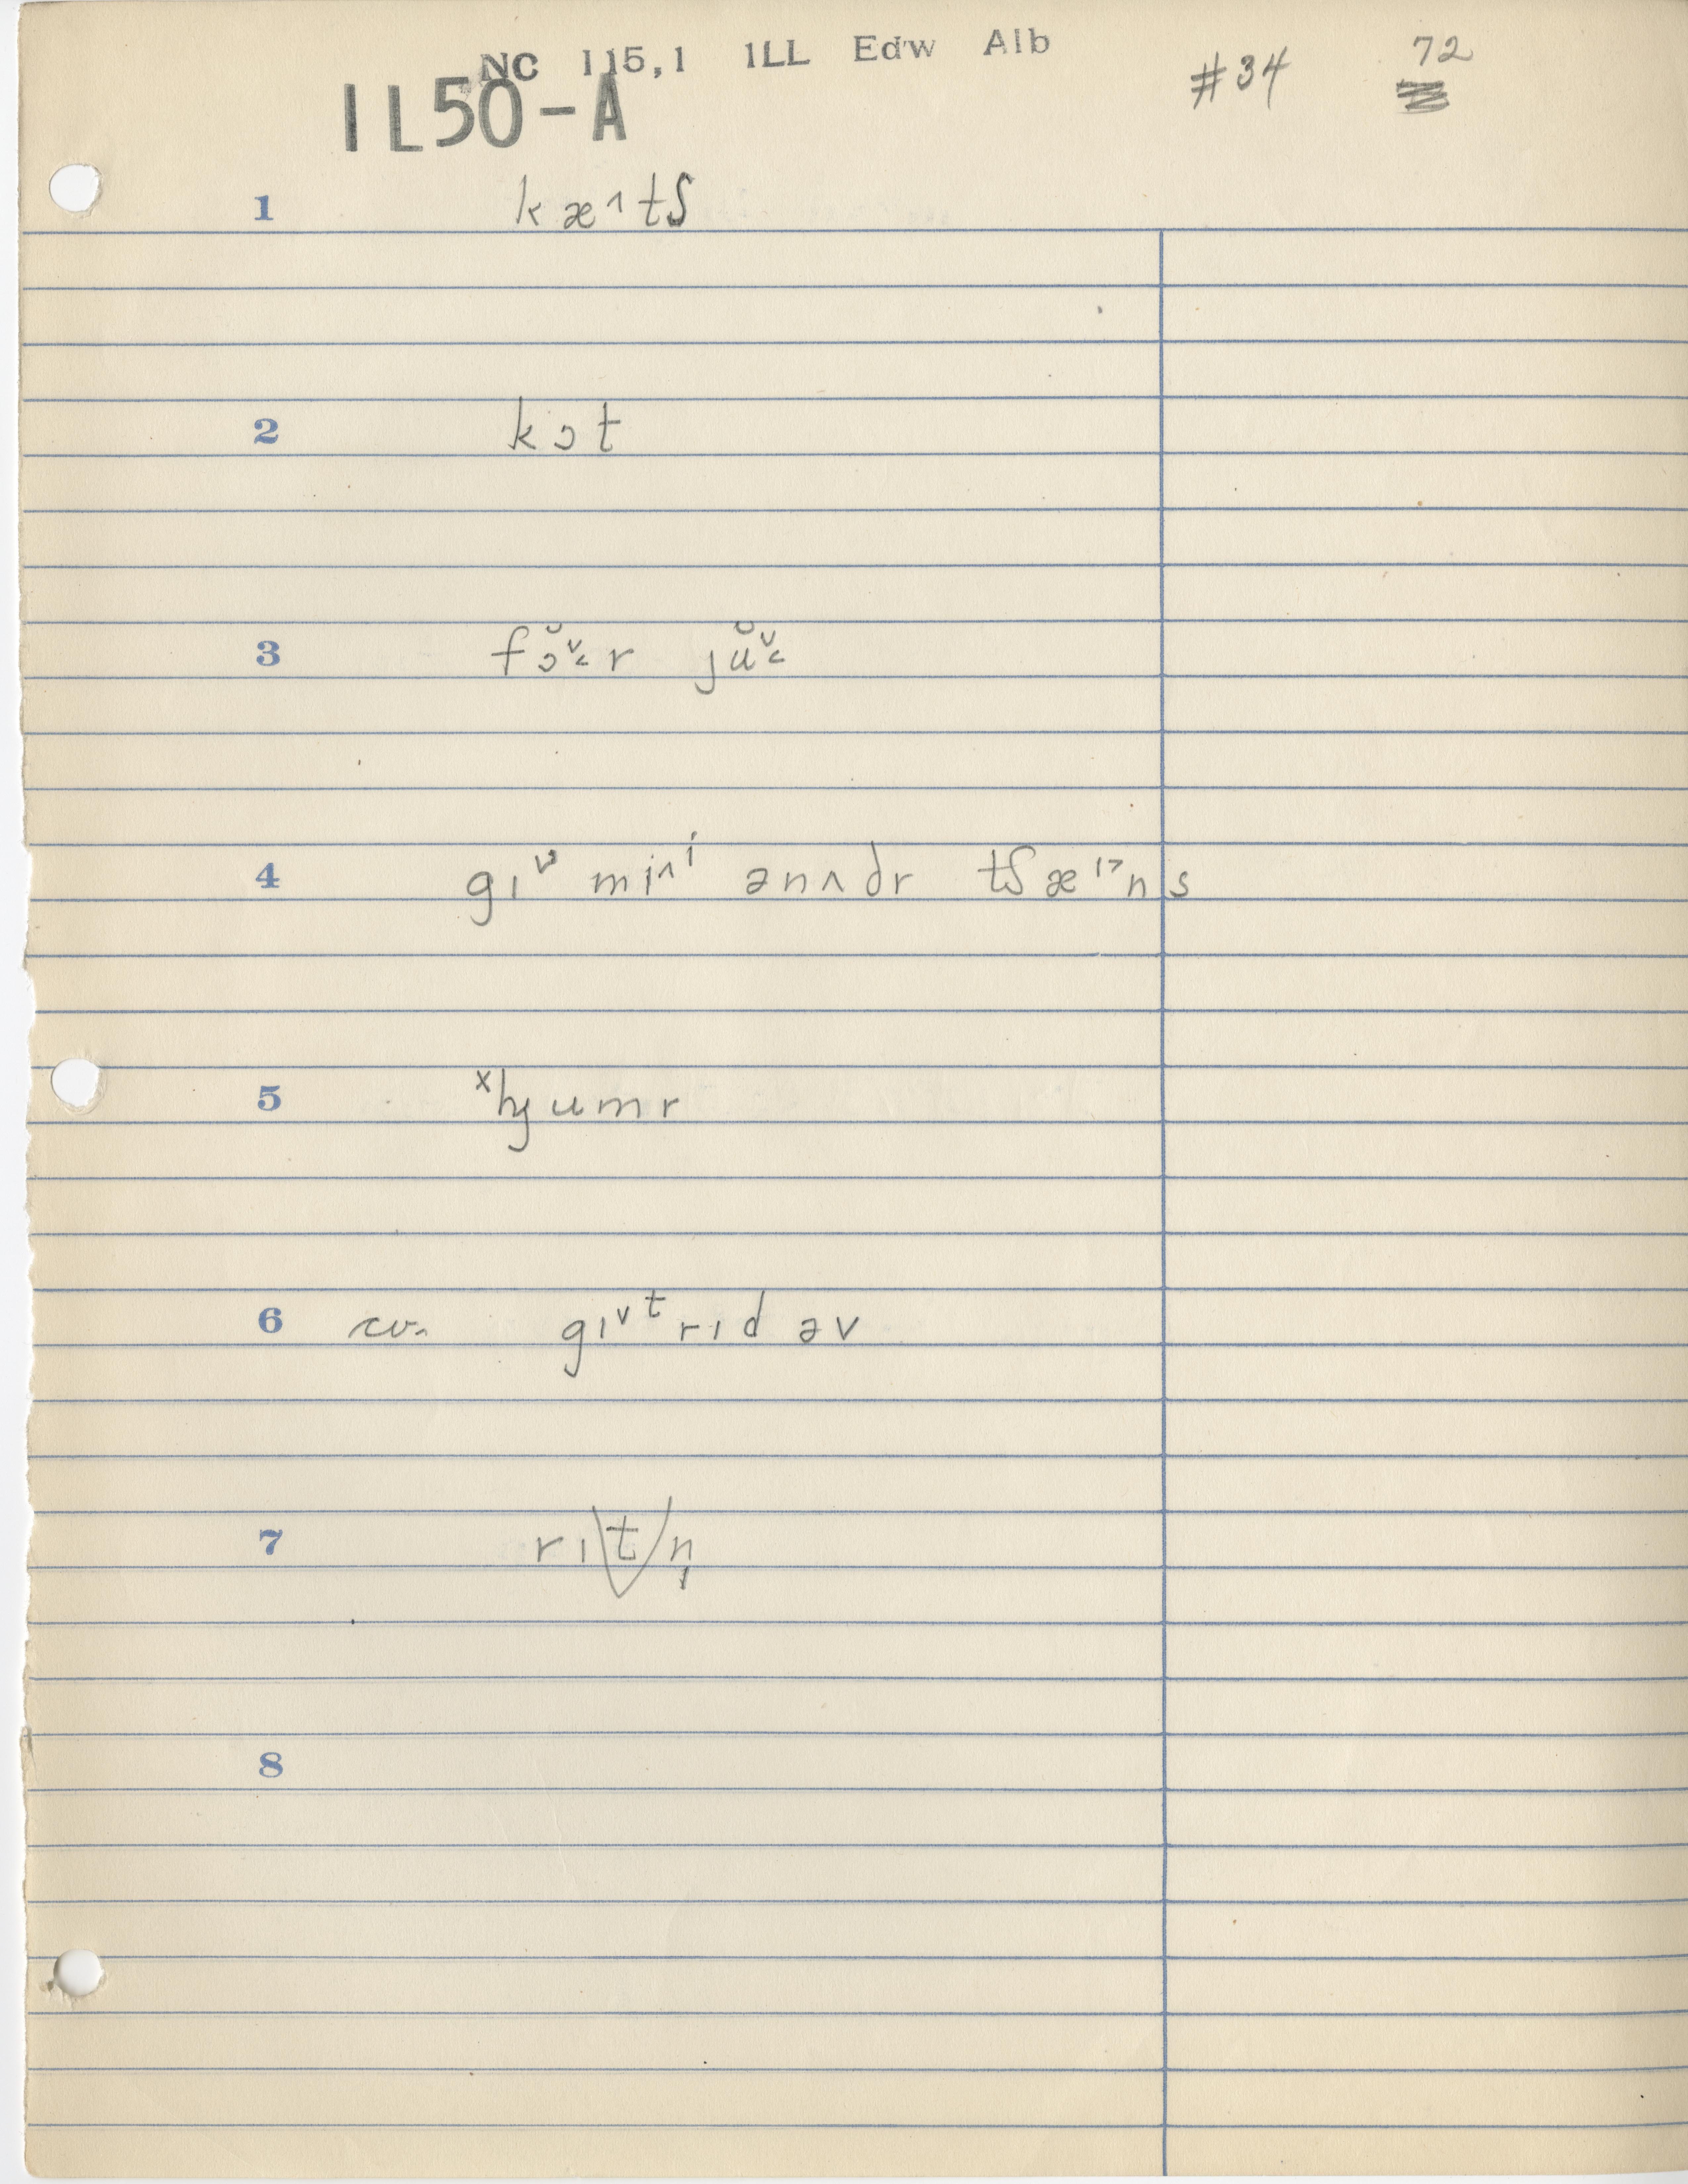 NC 115,1 ILL Edw Alb
#34 72
IL50-A
1 kæ˄tʃ
2 kɔt
3 fɔ̆˅˂r jŭ˅˂
4 gɪ˅ mi˄ⁱ ənʌðr tʃæ˄˃ns
5 ˣhjumr
6 cv. gɪ˅ᵗ rɪd əv
7 rɪ\t/n̩
8